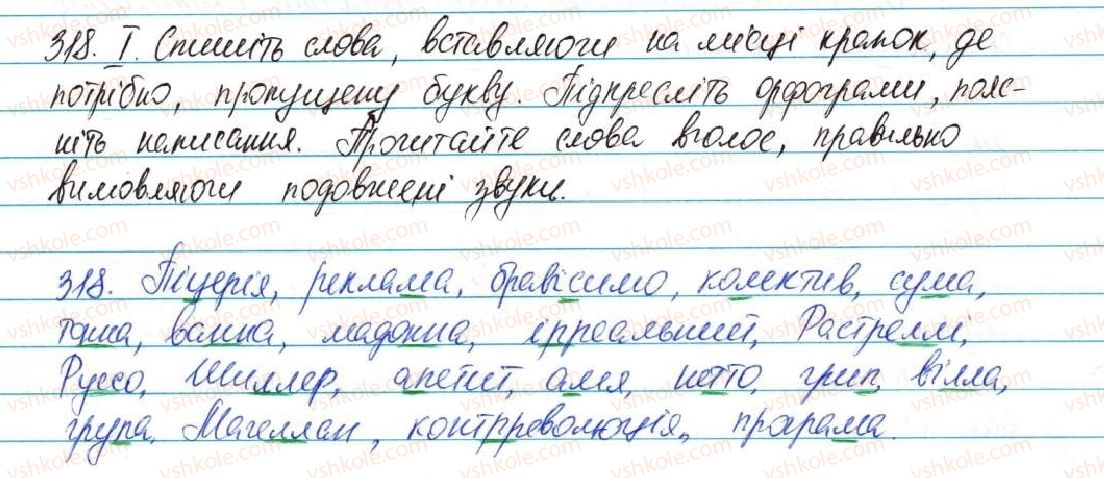 318. I. Спишіть слова, вставляючи на місці крапок, де
потрібно, пропущену букву. Підкресліть орфограми, пояс-
ніть написання. Прочитайте слова вголос, правильно
вимовляючи подовжені звуки.
318. Піцерія, реклама, бравісимо, колектив, сума,
тонна, ванна, мадонна, ірреальний, Растреллі,
Руссо, Шиллер, апетит, алея, нетто, грип, вілла,
група, Магеллан, контрреволюція, програма.